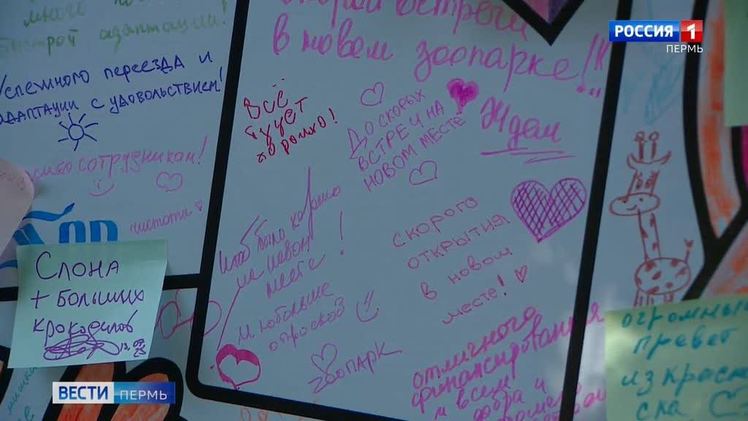 быстрой адаптации!
Успешного переезда и
адаптации с удовольствием!
сотрудникам!
чистота
Слона
+ больших
крокодилов
скорой встречи
в новом зоопарке!!!
Всё
будет
хорошо!
До скорых
встреч на
новом месте
Ждем
Чтоб было хорошо
на новом
месте!
И побольше
зоопарк
скорого
открытия
в новом
месте!
отличного
финансирования
и всем
добра и
огромный
привет
из Красно
ска
РОССИЯ 1
ПЕРМЬ
ВЕСТИ ПЕРМЬ